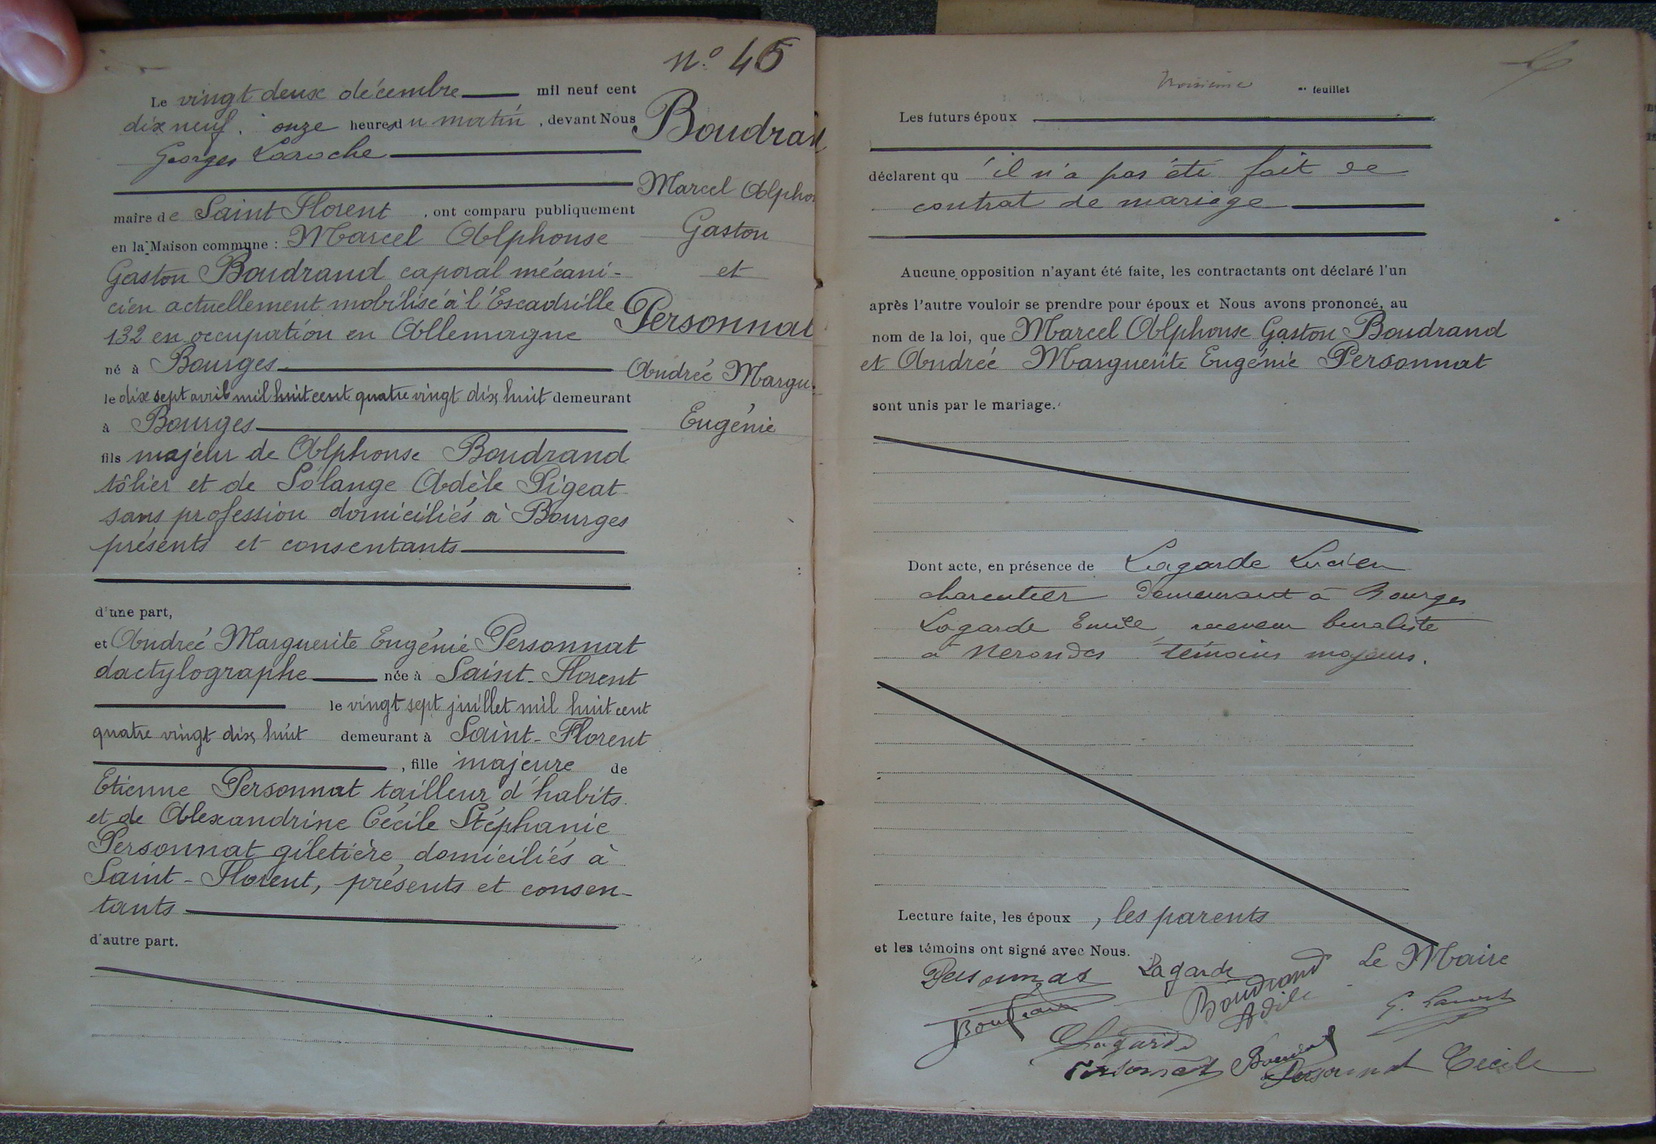 n° 45
Le vingt deux décembre mil neuf cent
dix neuf, onze heures du matin, devant Nous
Georges Laroche
maire de Saint Florent, ont comparu publiquement
en la Maison commune : Marcel Alphonse
Gaston Boudrand caporal mécani-
cien actuellement mobilisé à l'Escadrille
132 en occupation en Allemagne
né à Bourges
le dix sept avril mil huit cent quatre vingt dix huit demeurant
à Bourges
fils majeur de Alphonse Boudrand
tôlier et de Solange Adèle Pigeat
sans profession domiciliés à Bourges
présents et consentants
d'une part,
et Andrée Marguerite Eugénie Personnat
dactylographe née à Saint-Florent
le vingt sept juillet mil huit cent
quatre vingt dix huit demeurant à Saint-Florent
, fille majeure de
Etienne Personnat tailleur d'habits
et de Alexandrine Cécile Stéphanie
Personnat giletière, domiciliés à
Saint-Florent, présents et consen-
tants
d'autre part.
Boudran
Marcel Alpho
Gaston
et
Personnat
Andrée Margu
Eugénie
troisième feuillet
Les futurs époux
déclarent qu'il n'a pas été fait de
contrat de mariage
Aucune opposition n'ayant été faite, les contractants ont déclaré l'un
après l'autre vouloir se prendre pour époux et Nous avons prononcé, au
nom de la loi, que Marcel Alphonse Gaston Boudrand
et Andrée Marguerite Eugénie Personnat
sont unis par le mariage.
Dont acte, en présence de Lagarde Lucien
charcutier demeurant à Bourges
Lagarde Emile receveur buraliste
à Nerondes témoins majeurs.
Lecture faite, les époux, les parents
et les témoins ont signé avec Nous.
Personnat Lagarde Boudrand Le Maire
Adèle
Boudrand G. Laroche
Lagarde
Personnat Personnat Cécile